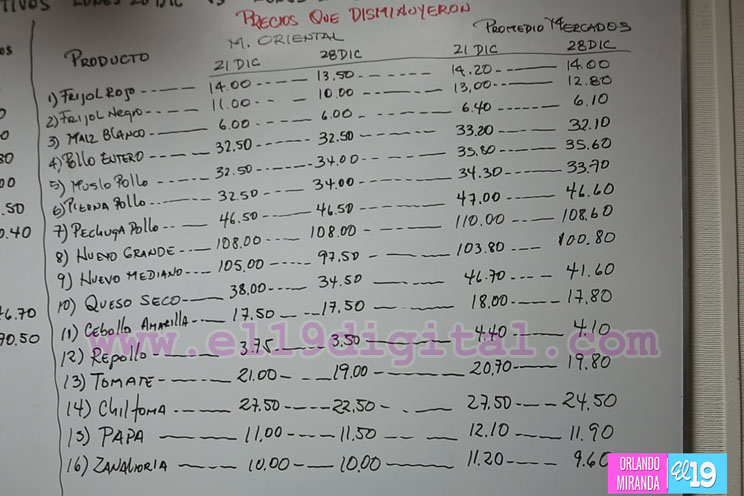 PRECIOS QUE DISMINUYERON
M. ORIENTAL PROMEDIO MERCADOS
PRODUCTO 21 DIC 28 DIC 21 DIC 28 DIC
1) FRIJOL ROJO ---- 14.00 ---- 13.50 ---- 14.20 ---- 14.00
2) FRIJOL NEGRO ---- 11.00 ---- 10.00 ---- 13,00 ---- 12.80
3) MAIZ BLANCO ---- 6.00 ---- 6.00 ---- 6.40 ---- 6.10
4) POLLO ENTERO ---- 32.50 ---- 32.50 ---- 33.20 ---- 32.10
5) MUSLO POLLO ---- 32.50 ---- 34.00 ---- 35.80 ---- 35.60
6) PIERNA POLLO ---- 32.50 ---- 34.00 ---- 34.30 ---- 33.70
7) PECHUGA POLLO ---- 46.50 ---- 46.50 ---- 47.00 ---- 46.60
8) HUEVO GRANDE ---- 108.00 ---- 108.00 ---- 110.00 ---- 108.60
9) HUEVO MEDIANO ---- 105.00 ---- 97.50 ---- 103.80 ---- 100.80
10) QUESO SECO ---- 38.00 ---- 34.50 ---- 46.70 ---- 41.60
11) CEBOLLA AMARILLA ---- 17.50 ---- 17.50 ---- 18.00 ---- 17.80
12) REPOLLO ---- 3.75 ---- 3.50 ---- 4.40 ---- 4.10
www.el19digital.com
13) TOMATE ---- 21.00 ---- 19.00 ---- 20,70 ---- 19.80
14) CHILTOMA ---- 27.50 ---- 22.50 ---- 27.50 ---- 24.50
15) PAPA ---- 11,00 ---- 11.50 ---- 12.10 ---- 11.90
16) ZANAHORIA ---- 10.00 ---- 10.00 ---- 11.20 ---- 9.60
ORLANDO
MIRANDA
El 19